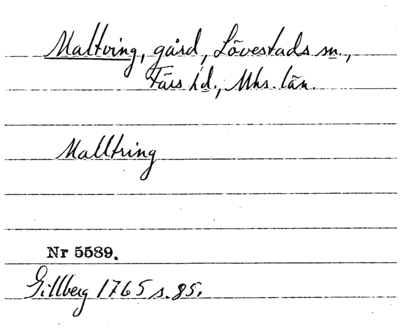 Maltving, gård, Lövestads sn.,
Färs hd., Mhs. län.
Malltring
Nr 5589.
Gillberg 1765 s. 85.